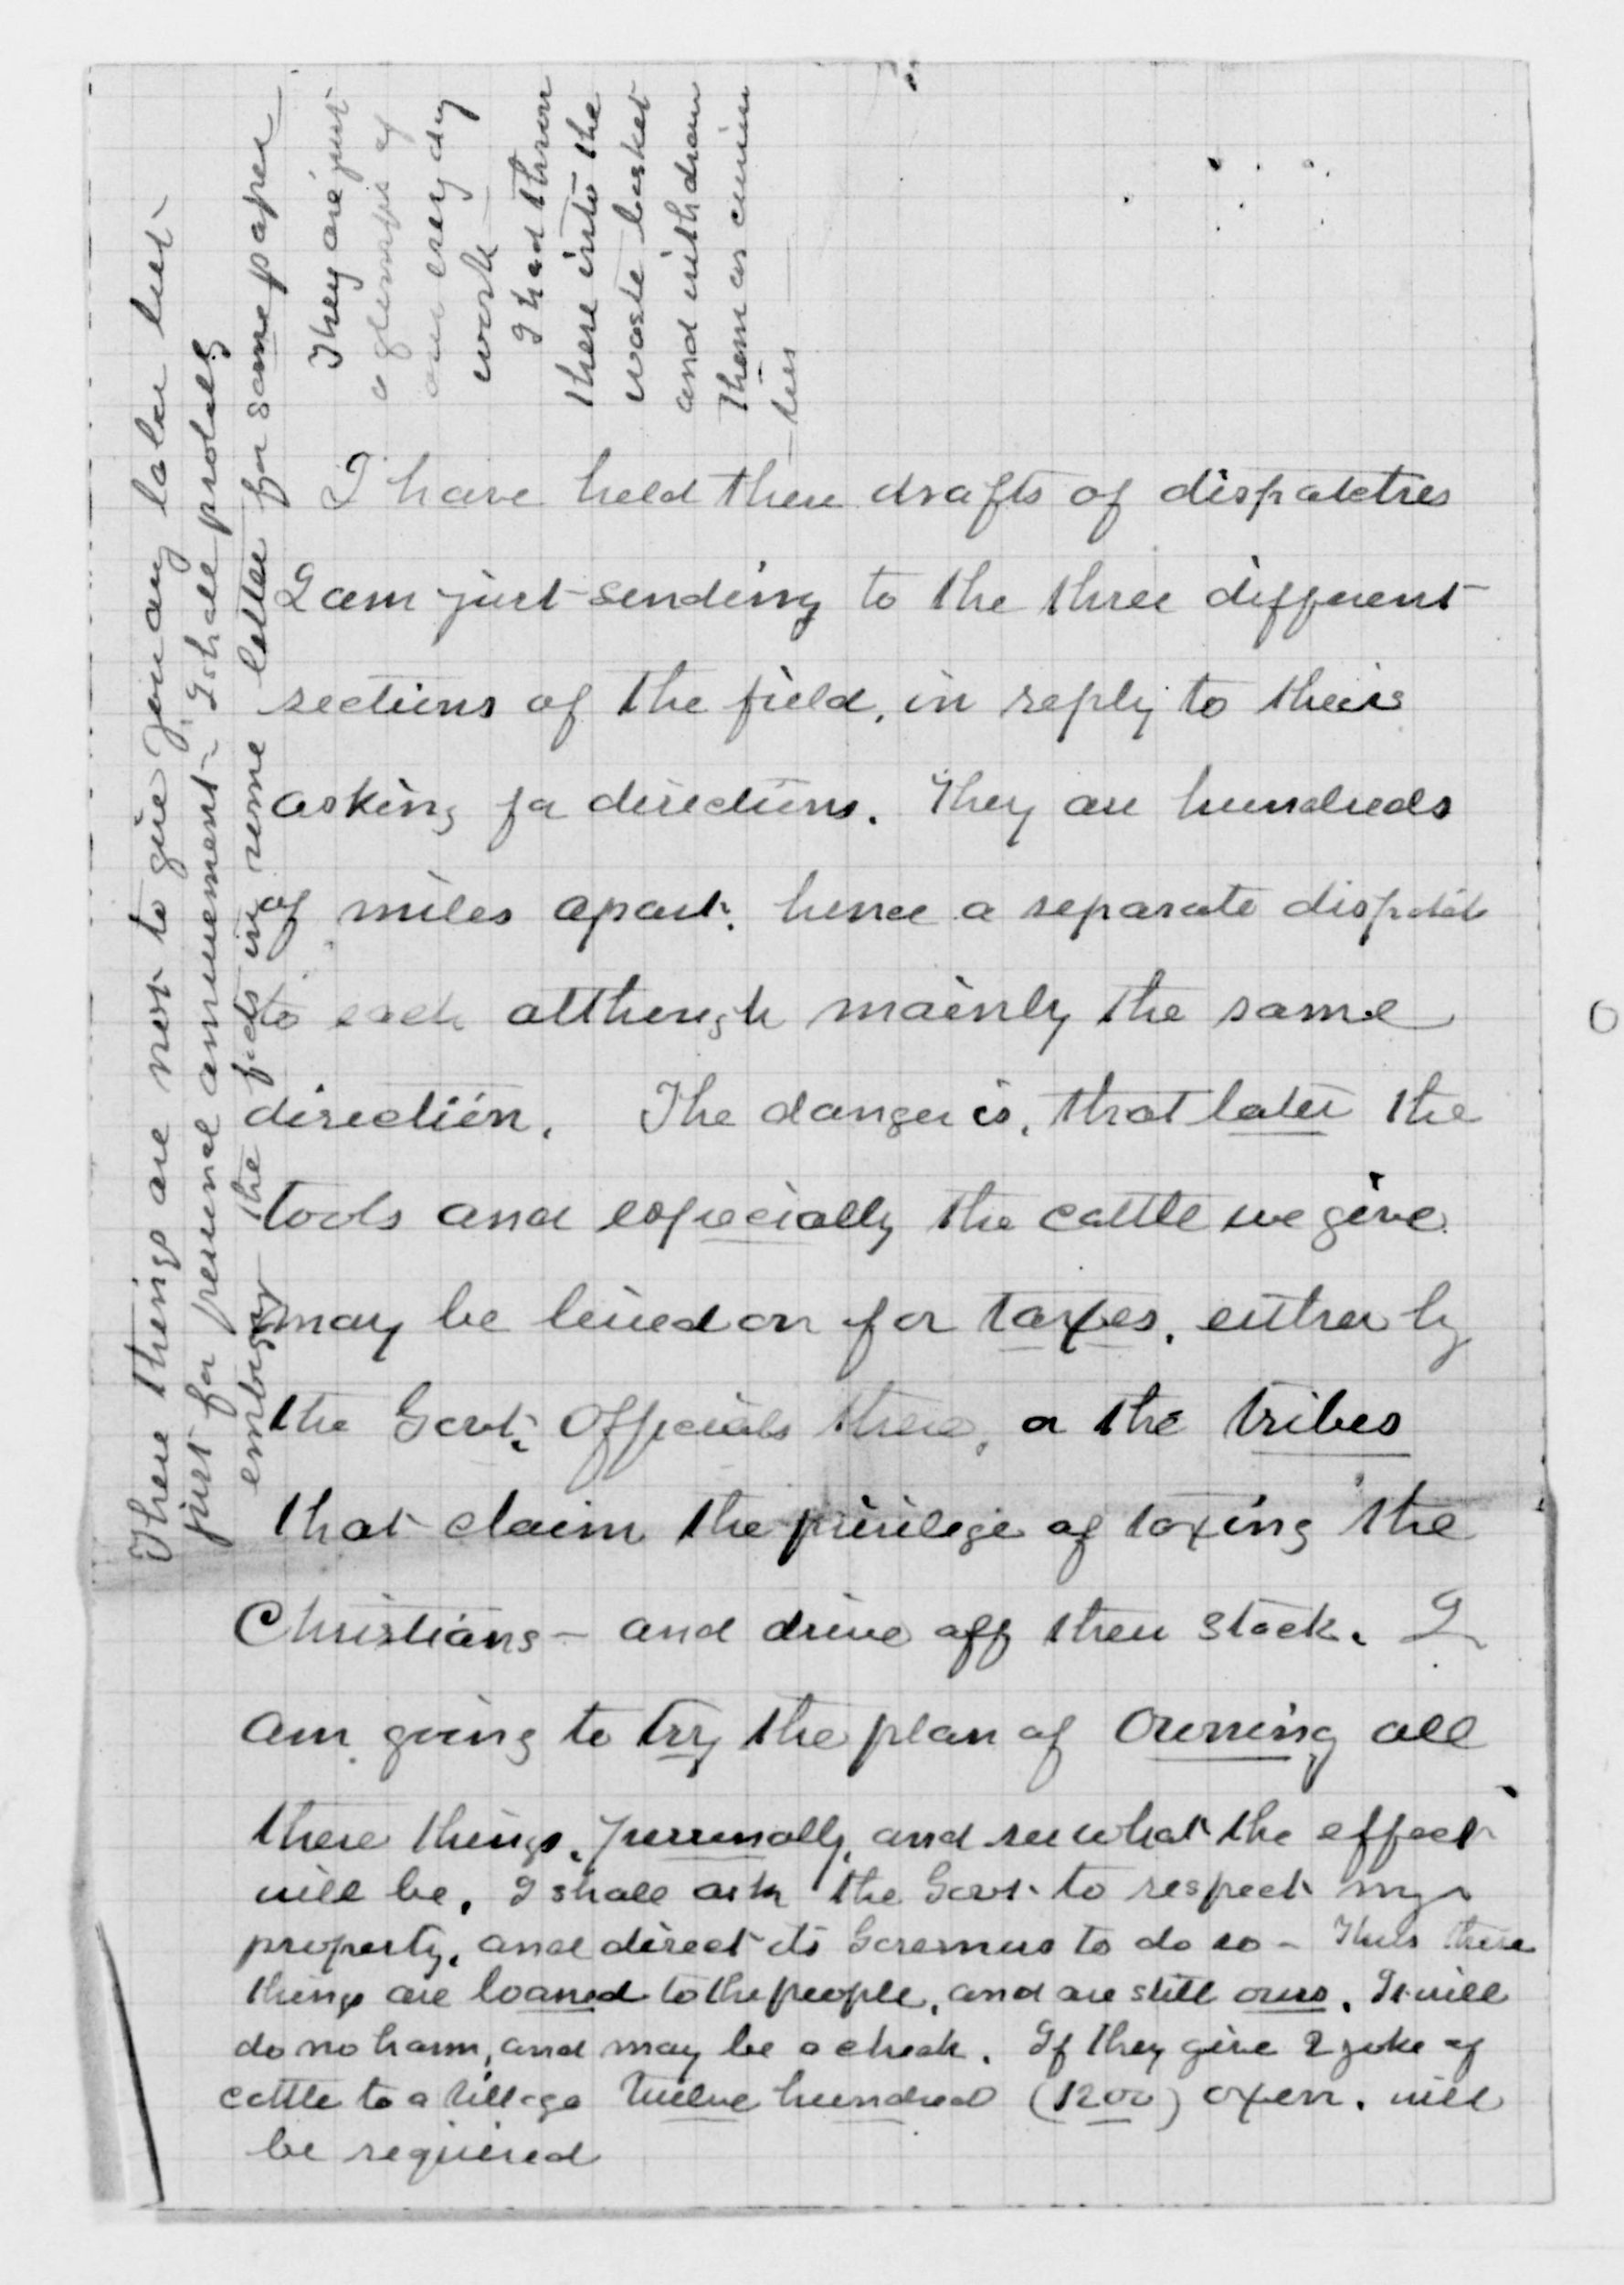 I have held these drafts of dispatches
I am just sending to the three different
sections of the field, in reply to their
asking for directions. They are hundreds
of miles apart, hence a separate dispatch
to each although mainly the same
direction. The danger is, that later the
tools and especially the cattle we give
may be levied on for taxes, either by
the Govt. Officials there, or the tribes
that claim the privilege of taxing the
Christians - and drive off their stock. I
am going to try the plan of owning all
these things, personally, and see what the effect
will be. I shall ask the Govt. to respect my
property, and direct its Governors to do so - Thus these
things are loaned to the people, and are still ours. It will
do no harm, and may be a check. If they give 2 yoke of
cattle to a village twelve hundred (1200) oxen, will
be required
These things are not to give you any labor but
just for personal amusement - I shall probably
embody the facts in some letter for some paper
They are just
a glimpse of
our every day
work -
I had thrown
these into the
waste basket
and withdrawn
them as curiosi
ties